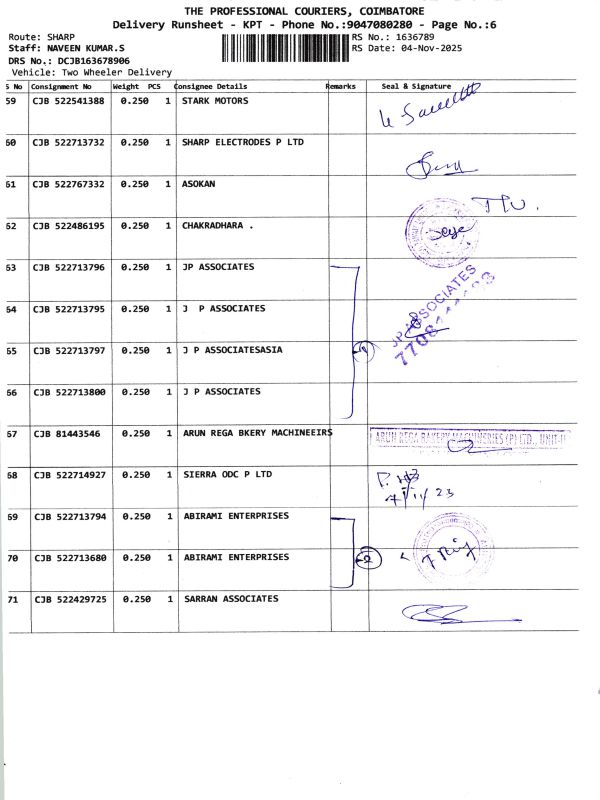 THE PROFESSIONAL COURIERS, COIMBATORE
Delivery Runsheet - KPT - Phone No.:9047080280 - Page No.:6
Route: SHARP RS No.: 1636789
Staff: NAVEEN KUMAR.S RS Date: 04-Nov-2025
DRS No.: DCJB163678906
Vehicle: Two Wheeler Delivery
S No Consignment No Weight PCS Consignee Details Remarks Seal & Signature
59 CJB 522541388 0.250 1 STARK MOTORS
60 CJB 522713732 0.250 1 SHARP ELECTRODES P LTD
61 CJB 522767332 0.250 1 ASOKAN
62 CJB 522486195 0.250 1 CHAKRADHARA .
63 CJB 522713796 0.250 1 JP ASSOCIATES
64 CJB 522713795 0.250 1 J P ASSOCIATES
JP ASSOCIATES
65 CJB 522713797 0.250 1 J P ASSOCIATESASIA
66 CJB 522713800 0.250 1 J P ASSOCIATES
67 CJB 81443546 0.250 1 ARUN REGA BKERY MACHINEEIRS ARUN REGA BAKERY MACHINERIES (P) LTD., UNIT-II
68 CJB 522714927 0.250 1 SIERRA ODC P LTD
69 CJB 522713794 0.250 1 ABIRAMI ENTERPRISES
70 CJB 522713680 0.250 1 ABIRAMI ENTERPRISES
71 CJB 522429725 0.250 1 SARRAN ASSOCIATES